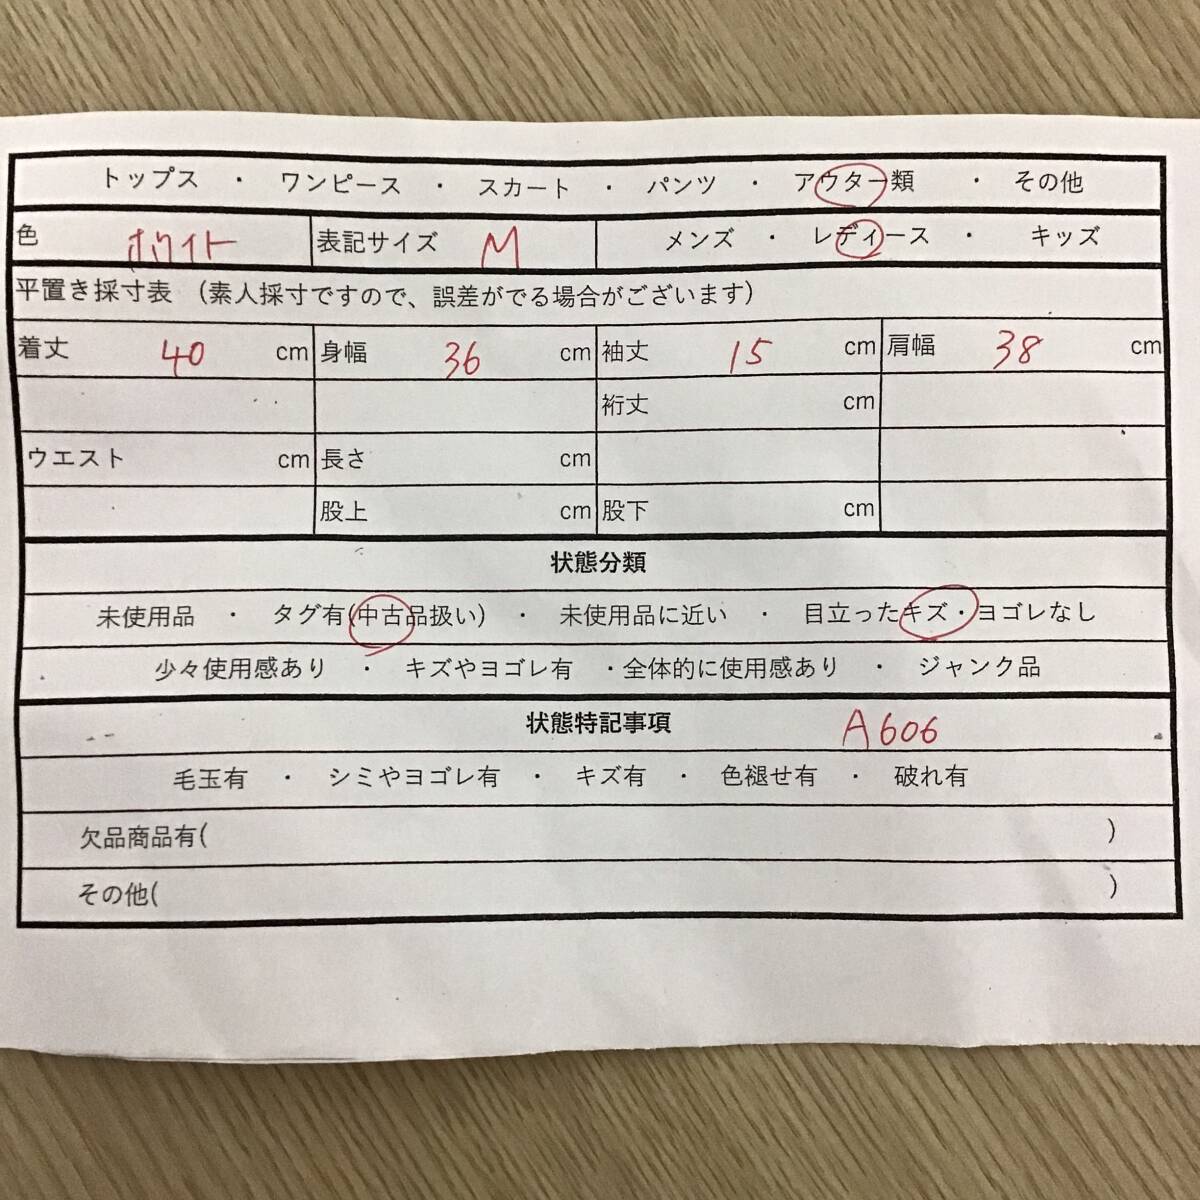 トップス ・ ワンピース ・ スカート ・ パンツ ・ アウター類 ・ その他
色 ホワイト 表記サイズ M メンズ ・ レディース ・ キッズ
平置き採寸表 (素人採寸ですので、誤差がでる場合がございます)
着丈 40 cm 身幅 36 cm 袖丈 15 cm 肩幅 38 cm
裄丈 cm
ウエスト cm 長さ cm
股上 cm 股下 cm
状態分類
未使用品 ・ タグ有(中古品扱い) ・ 未使用品に近い ・ 目立ったキズ・ヨゴレなし
少々使用感あり ・ キズやヨゴレ有 ・全体的に使用感あり ・ ジャンク品
状態特記事項 A606
毛玉有 ・ シミやヨゴレ有 ・ キズ有 ・ 色褪せ有 ・ 破れ有
欠品商品有( )
その他( )